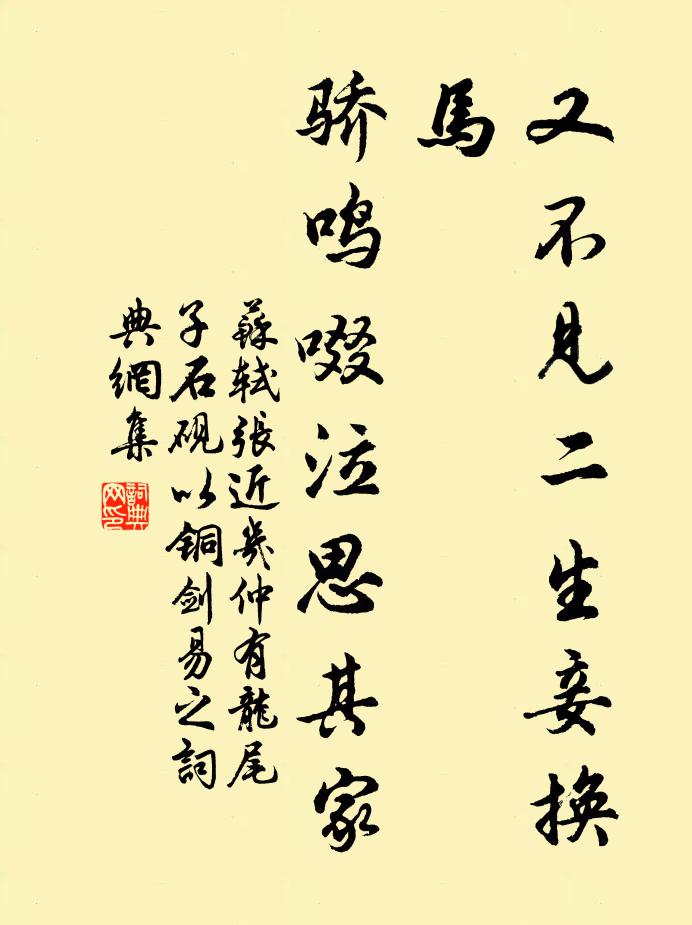 又不见二生妾换
馬
骄鸣啜泣思其家
蘇轼張近幾仲有龍尾
子石砚以銅剑易之詞
典網集
詞典
网印